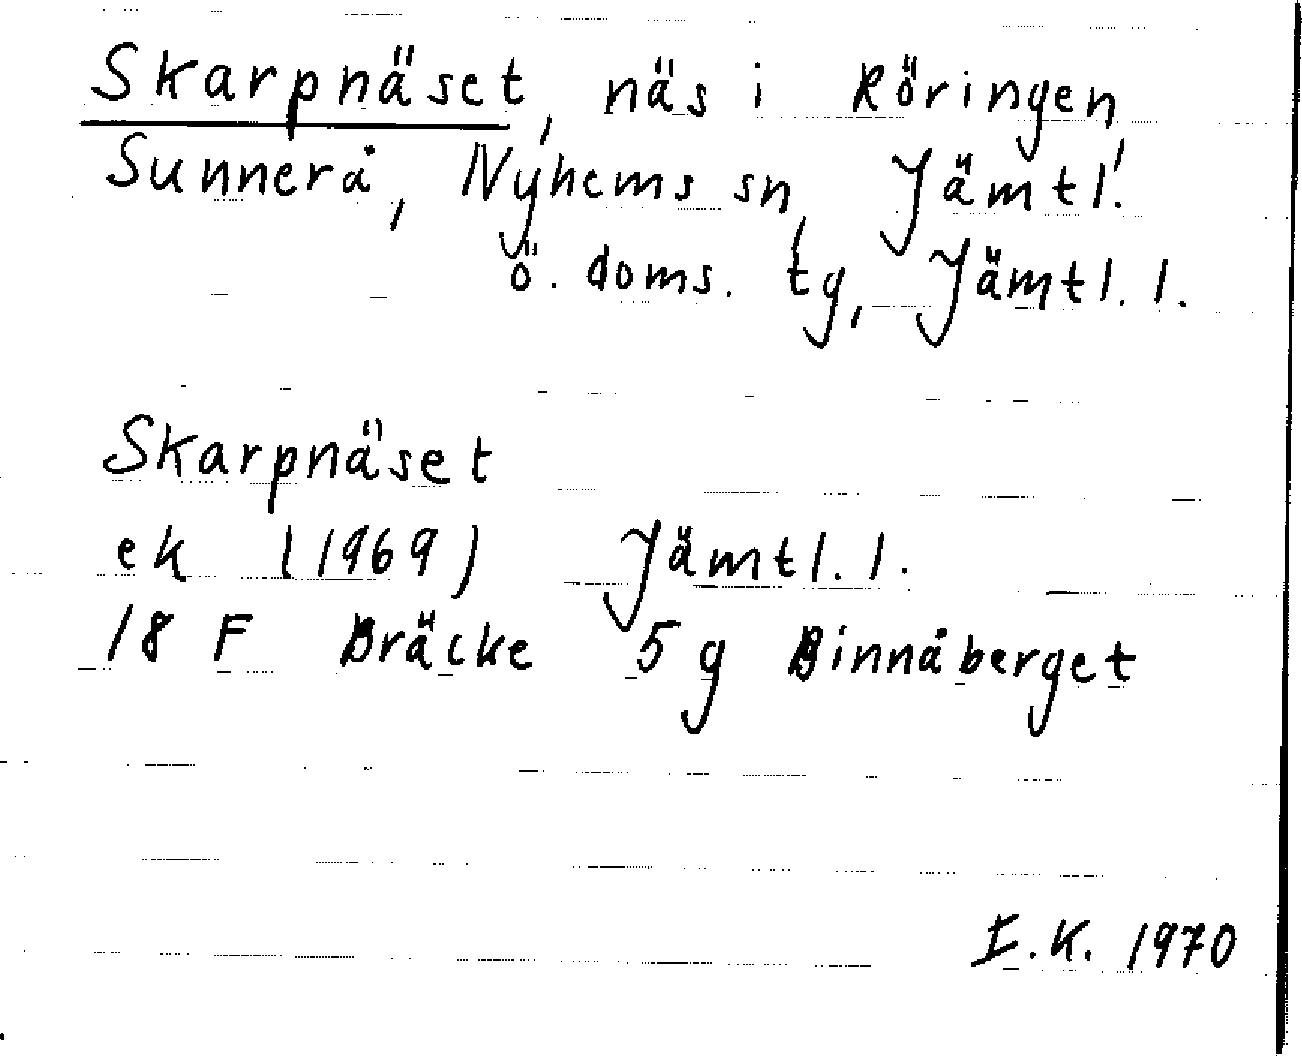 Skarpnäset, näs i Röringen,
Sunnerå, Nyhems sn, Jämtl.
ö. doms. tg, Jämtl. l.
Skarpnäset
ek (1969) Jämtl. l.
18 F Bräcke 5 g Binnåberget
E.K. 1970